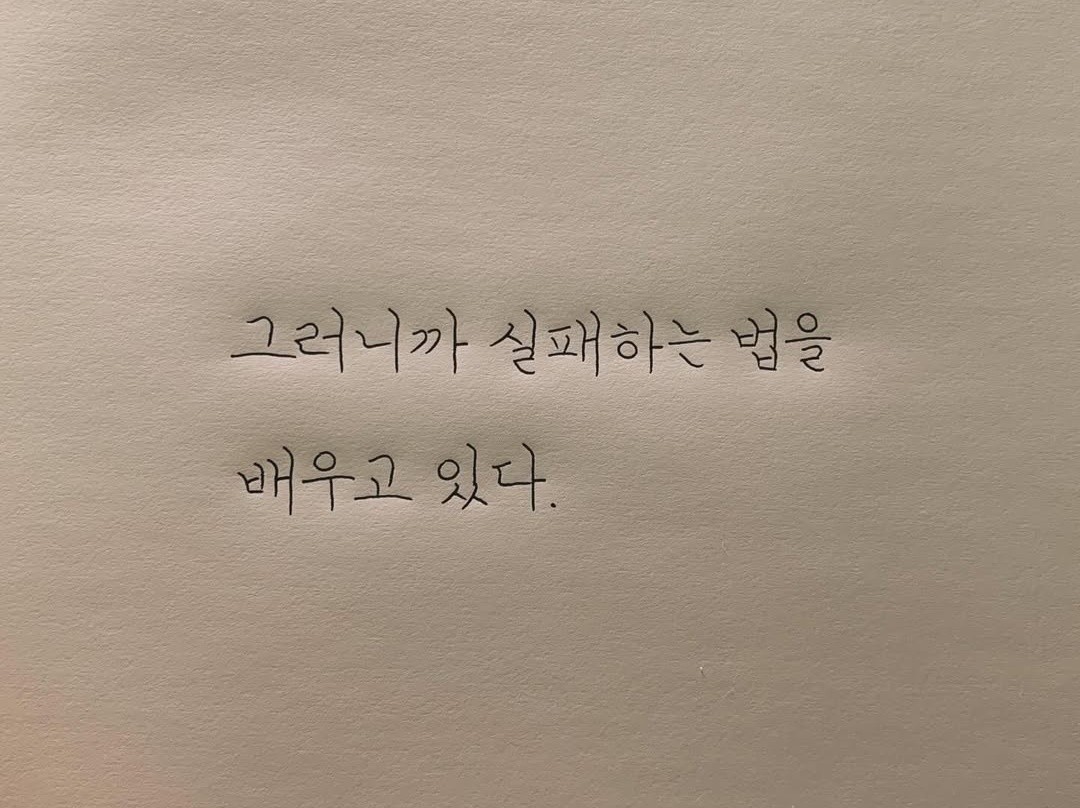 그러니까 실패하는 법을
배우고 있다.